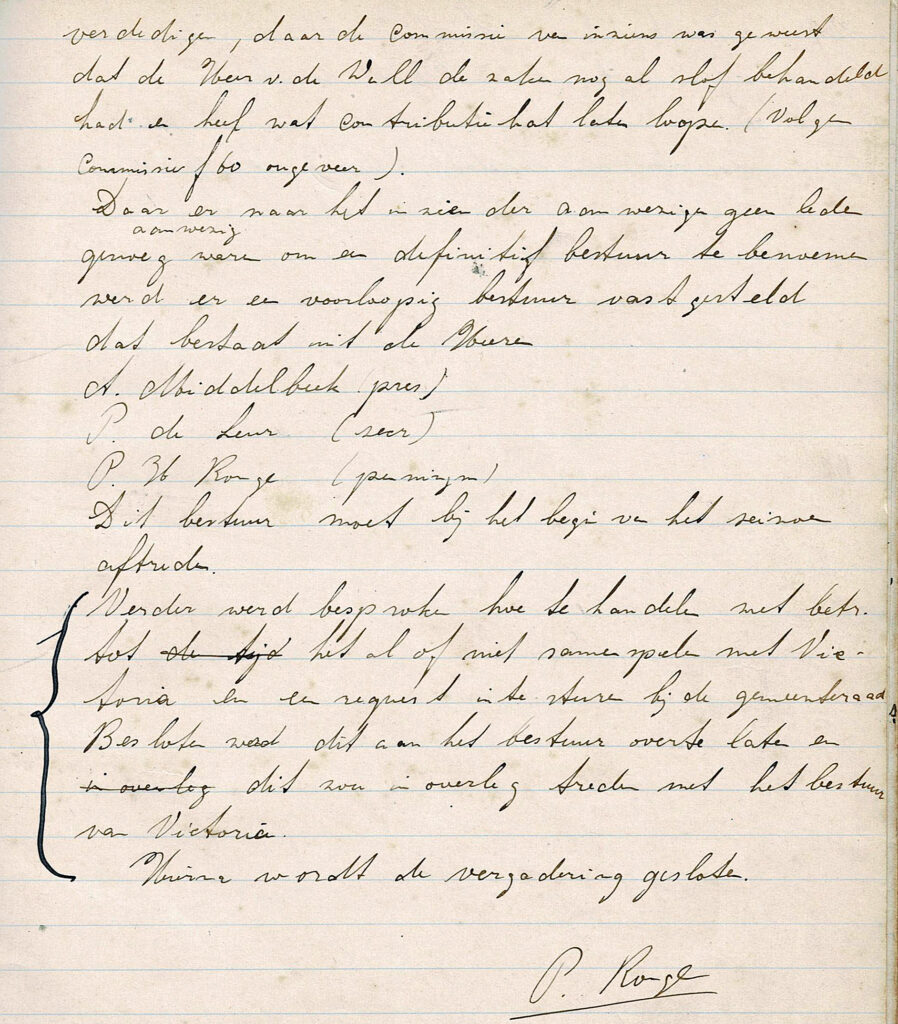 verdedigen, daar de commissie van inziens was geweest
dat de Heer v. de Wall de zaken nog al slof behandeld
had en heef wat contributie hat laten loope. (Volgen
Commissie f 60 ongeveer).
Daar er naar het in zien der aanwezigen geen leden
aanwezig
genoeg ware om een definitief bestuur te benoemen
werd er een voorloopig bestuur vastgesteld
dat bestaat uit de Heeren
A. Middelbeek (pres)
P. de Leur (secr)
P. H Ronge (penningm)
Dit bestuur moet bij het begin van het seizoen
aftreden.
Verder werd besproken hoe te handelen met betr.
tot de tijd het al of niet samenspelen met Vic-
toria en een request in te sturen bij de gemeenteraad
Besloten werd dit aan het bestuur over te laten en
in overleg dit zou in overleg treden met het bestuur
van Victoria.
Hierna wordt de vergadering gesloten.
P. Ronge